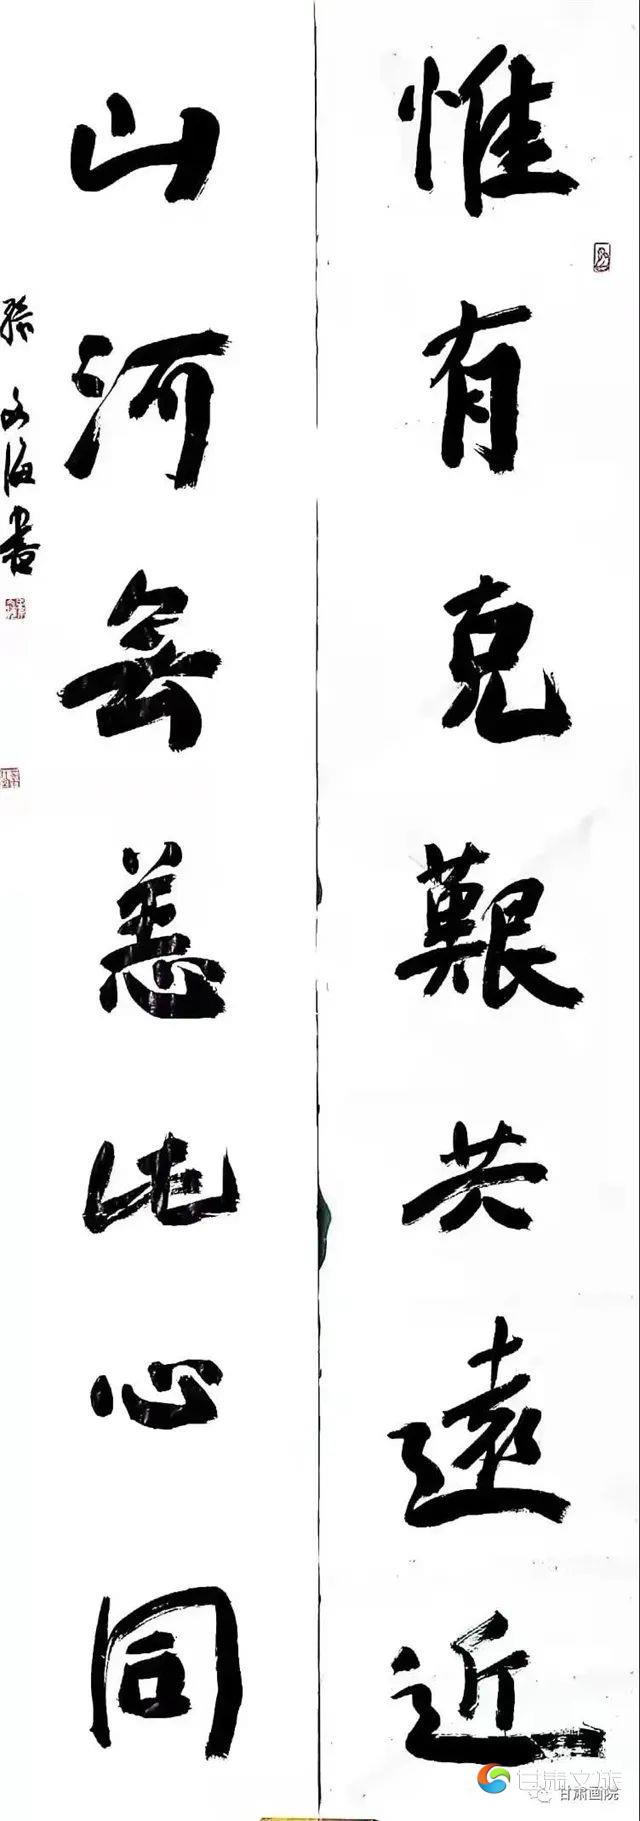 惟有克艱共遠近
山河無恙此心同
張文海書
甘肃文旅
甘肃画院